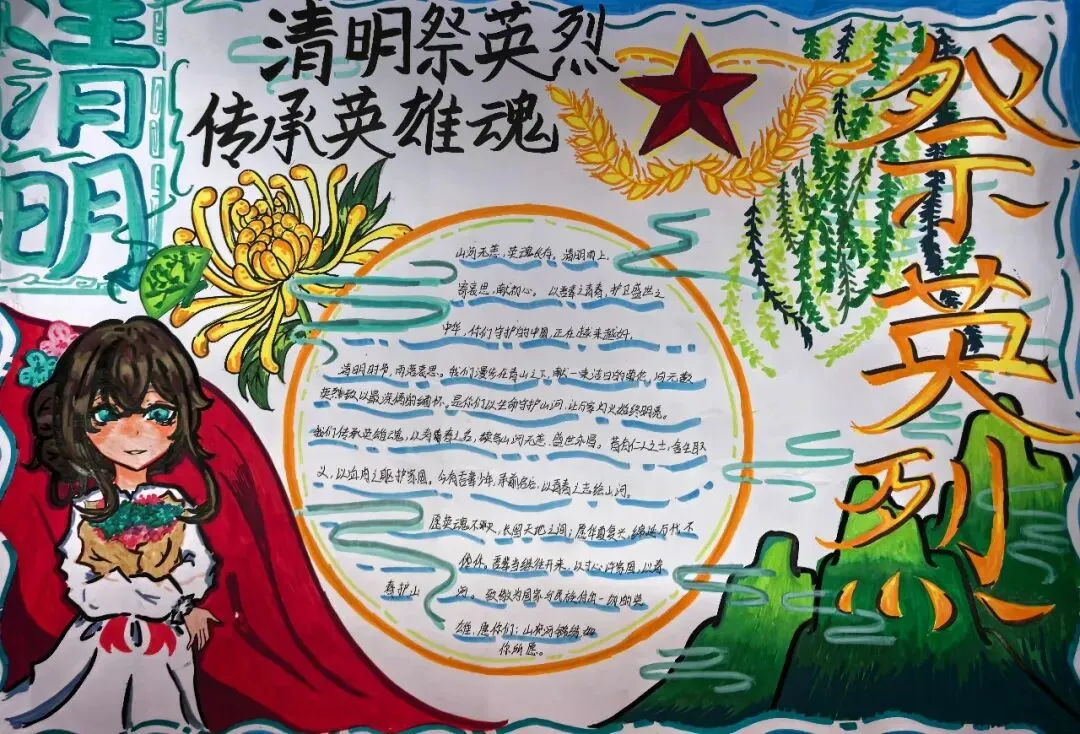 清明
清明祭英烈
传承英雄魂
祭英烈
山河无恙,英魂长存。清明雨上,
寄哀思,献初心。以吾辈之青春,护卫盛世之
中华,你们守护的中国,正在越来越好。
清明时节,雨落哀思。我们漫步在青山之下,献一束洁白的菊花,向无数
英烈致以最深情的缅怀。是你们以生命守护山河,让万家灯火雄终明亮。
我们传承英雄魂,以青春之名,续写山河无恙,盛世永昌。昔有仁人之士,舍生取
义,以血肉之躯护家国。今有吾辈少年,承前启后,以青春之志绘山河。
愿英魂不朽,长留天地之间;愿华夏复兴,绵延万代不
休,吾辈当继往开来,以寸心许家国,以青
春护山
河。致敬为国家与民族付出一切的英
雄,愿你们:山河
你所愿。